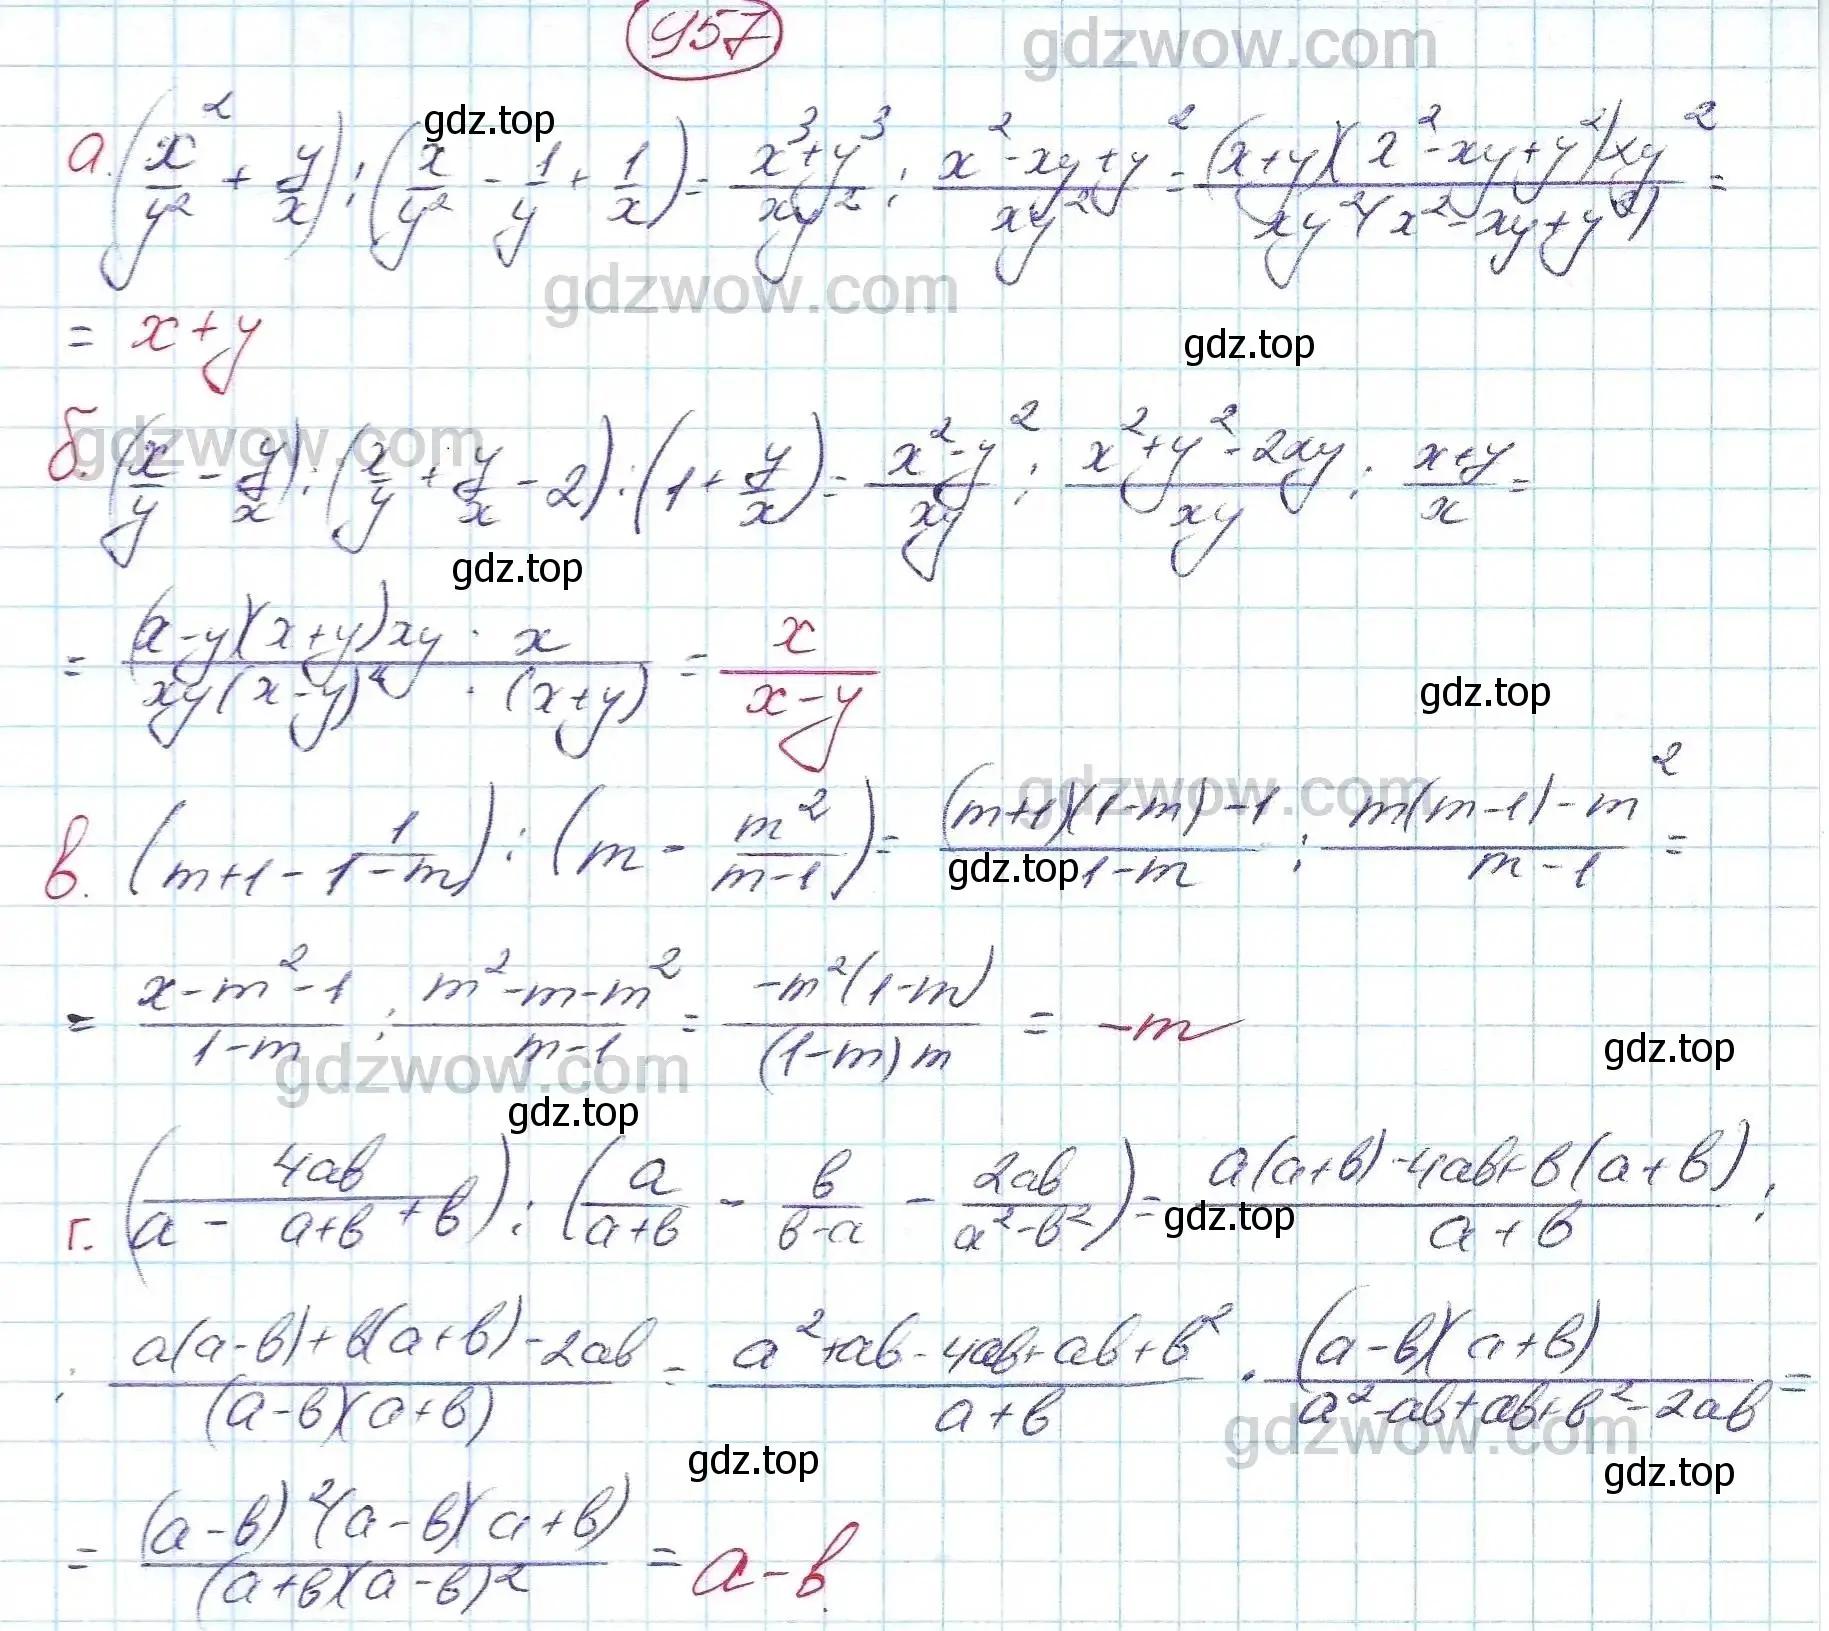 957
gdzwow.com
gdz.top
а. (x²/y² + y/x) : (x/y² - 1/y + 1/x) = (x³+y³)/(xy²) : (x²-xy+y²)/(xy²) = ((x+y)(x²-xy+y²)xy²)/(xy²(x²-xy+y²)) =
gdzwow.com
= x+y
gdz.top
gdzwow.com
б. (x/y - y/x) : (x/y + y/x - 2) : (1 + y/x) = (x²-y²)/(xy) : (x²+y²-2xy)/(xy) : (x+y)/x =
gdz.top
= ((x-y)(x+y)xy · x)/(xy(x-y)² · (x+y)) = x/(x-y)
gdz.top
gdzwow.com
в. (m+1 - 1/(1-m)) : (m - m²/(m-1)) = ((m+1)(1-m)-1)/(1-m) : (m(m-1)-m²)/(m-1) =
gdz.top
= (x-m²-1)/(1-m) : (m²-m-m²)/(m-1) = (-m²(1-m))/((1-m)m) = -m
gdz.top
gdzwow.com
gdz.top
г. (a - 4ab/(a+b) + b) : (a/(a+b) - b/(b-a) - 2ab/(a²-b²)) = (a(a+b)-4ab+b(a+b))/(a+b) :
gdz.top
: (a(a-b)+b(a+b)-2ab)/((a-b)(a+b)) = (a²+ab-4ab+ab+b²)/(a+b) · ((a-b)(a+b))/(a²-ab+ab+b²-2ab) =
gdzwow.com
gdz.top
gdz.top
= ((a-b)²(a-b)(a+b))/((a+b)(a-b)²) = a-b.